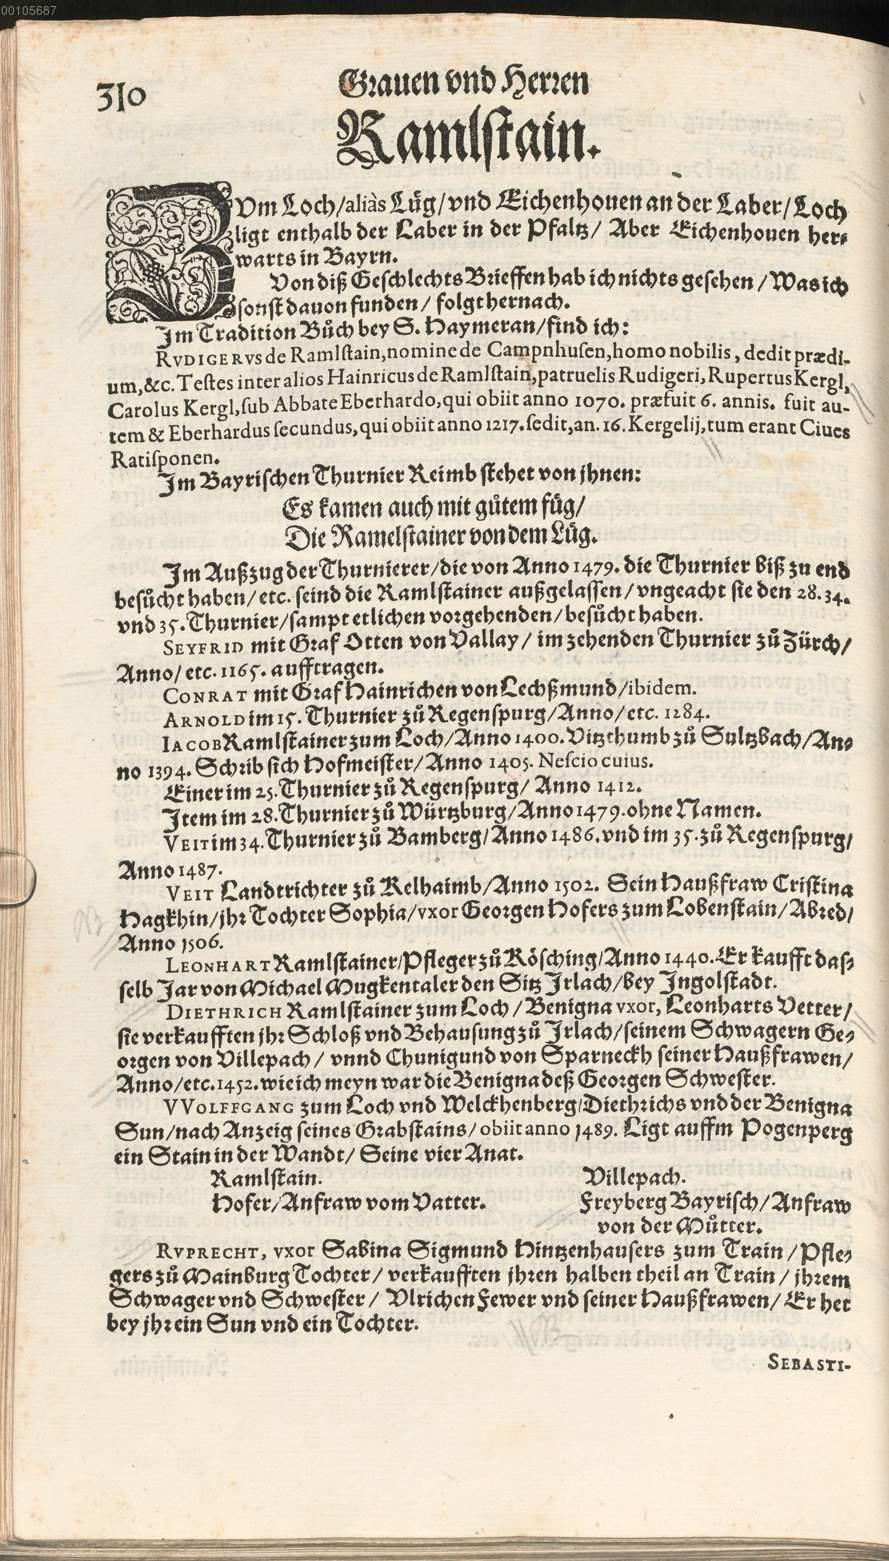 00105687
310
Grauen vnd Herren
Ramlstain.
ZVm Loch/aliàs Lůg/vnd Eichenhouen an der Laber/Loch
ligt enthalb der Laber in der Pfaltz/ Aber Eichenhouen her-
warts in Bayrn.
Von diß Geschlechts Brieffen hab ich nichts gesehen/Was ich
sonst dauon funden/ folgt hernach.
Im Tradition Bůch bey S. Haymeran/find ich:
RVDIGERVS de Ramlstain, nomine de Campnhusen, homo nobilis, dedit prædi-
um,&c. Testes inter alios Hainricus de Ramlstain, patruelis Rudigeri, Rupertus Kergl,
Carolus Kergl, sub Abbate Eberhardo, qui obiit anno 1070. præfuit 6. annis. fuit au-
tem & Eberhardus secundus, qui obiit anno 1217. sedit, an. 16. Kergelij, tum erant Ciues
Ratisponen.
Im Bayrischen Thurnier Reimb stehet von jhnen:
Es kamen auch mit gůtem fůg/
Die Ramelstainer von dem Lůg.
Im Außzug der Thurnierer/die von Anno 1479. die Thurnier biß zu end
besůcht haben/etc. seind die Ramlstainer außgelassen/vngeacht sie den 28. 34.
vnd 35. Thurnier/sampt etlichen vorgehenden/besůcht haben.
SEYFRID mit Graf Otten von Vallay/ im zehenden Thurnier zů Zürch/
Anno/etc. 1165. aufftragen.
CONRAT mit Graf Hainrichen von Lechßmund/ibidem.
ARNOLD im 15. Thurnier zů Regenspurg/Anno/etc. 1284.
IACOB Ramlstainer zum Loch/Anno 1400. Vitzthumb zů Sultzbach/An-
no 1394. Schrib sich Hofmeister/Anno 1405. Nescio cuius.
Einer im 25. Thurnier zů Regenspurg/ Anno 1412.
Item im 28. Thurnier zů Würtzburg/Anno 1479. ohne Namen.
VEIT im 34. Thurnier zů Bamberg/Anno 1486. vnd im 35. zů Regenspurg/
Anno 1487.
VEIT Landtrichter zů Kelhaimb/Anno 1502. Sein Haußfraw Cristina
Hagkhin/jhr Tochter Sophia/vxor Georgen Hofers zum Lobenstain/Abred/
Anno 1506.
LEONHART Ramlstainer/Pfleger zů Kösching/Anno 1440. Er kaufft das-
selb Jar von Michael Mugkentaler den Sitz Irlach/bey Ingolstadt.
DIETHRICH Ramlstainer zum Loch/Benigna vxor, Leonharts Vetter/
sie verkaufften jhr Schloß vnd Behausung zů Irlach/seinem Schwagern Ge-
orgen von Villepach/ vnnd Chunigund von Sparneckh seiner Haußfrawen/
Anno/etc. 1452. wie ich meyn war die Benigna deß Georgen Schwester.
VVOLFFGANG zum Loch vnd Welckhenberg/Diethrichs vnd der Benigna
Sun/nach Anzeig seines Grabstains/obiit anno 1489. Ligt auffm Pogenperg
ein Stain in der Wandt/ Seine vier Anat.
Ramlstain. Villepach.
Hofer/Anfraw vom Vatter. Freyberg Bayrisch/Anfraw
von der Můtter.
RVPRECHT, vxor Sabina Sigmund Hintzenhausers zum Train/Pfle-
gers zů Mainburg Tochter/ verkaufften jhren halben theil an Train/ jhrem
Schwager vnd Schwester/ Vlrichen Fewer vnd seiner Haußfrawen/ Er het
bey jhr ein Sun vnd ein Tochter.
SEBASTI-